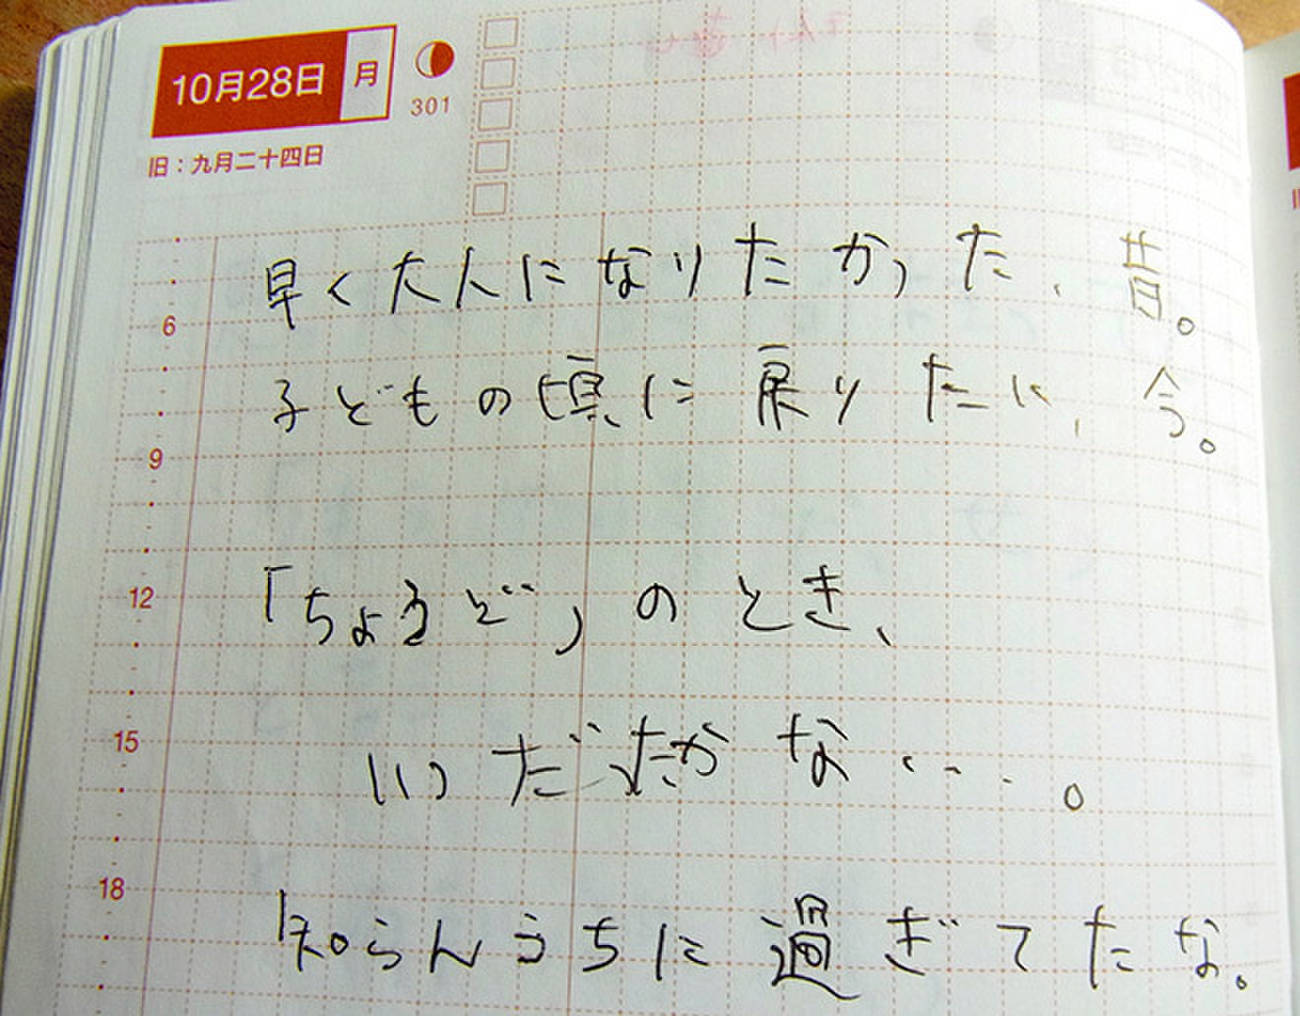 10月28日 月
301
旧：九月二十四日
早く大人になりたかった、昔。
6
子どもの頃に戻りたい、今。
9
「ちょうど」のとき、
12
いつだったかな・・・。
15
知らんうちに過ぎてたな。
18